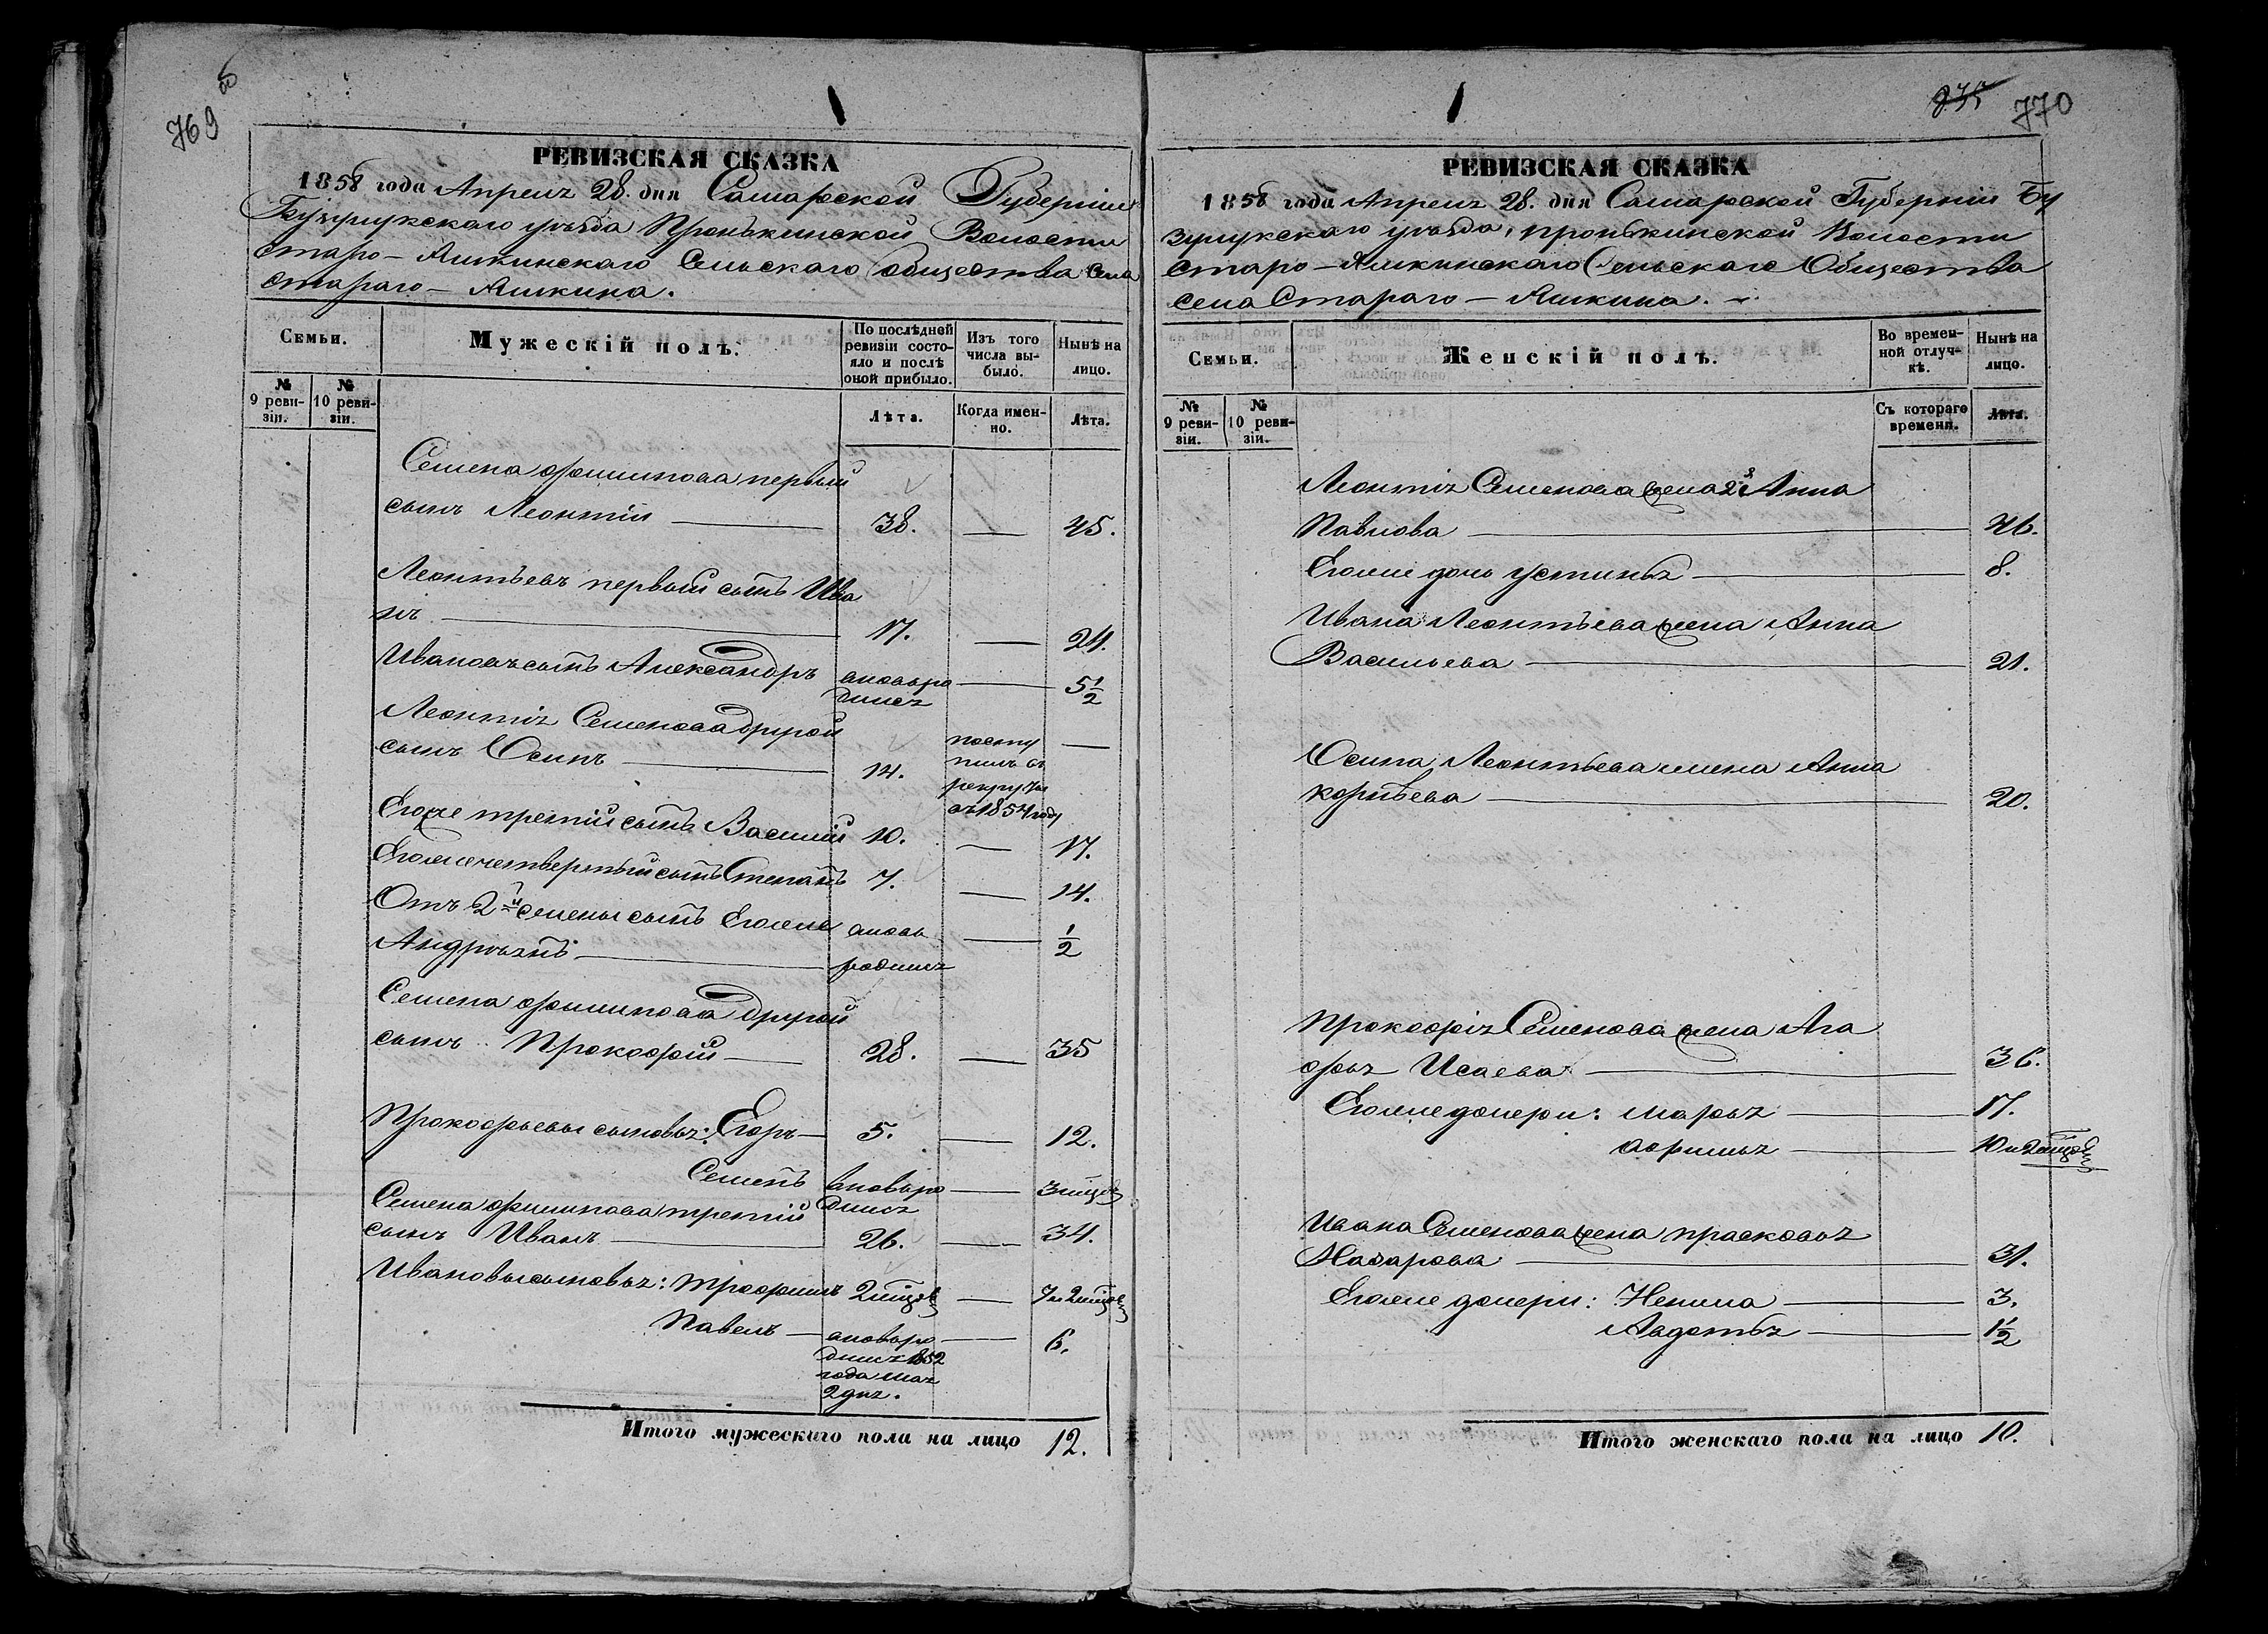 769 об
РЕВИЗСКАЯ СКАЗКА
1858 года Апреля 28. дня Самарской Губернии
Бузулукскаго уѣзда Пронькинской Волости
Старо-Ашкинскаго Сельскаго общества Села
Стараго-Ашкина.
Семьи.
Мужескій полъ.
По послѣдней ревизіи состояло и послѣ оной прибыло.
Изъ того числа выбыло.
Нынѣ на лицо.
№ 9 ревизіи.
№ 10 ревизіи.
Лѣта.
Когда именно.
Лѣта.
Семена Филипова первый
сынъ Леонтій — 38. — 45.
Леонтьевъ первый сынъ Ива
нъ — 17. — 24.
Ивановъ сынъ Александръ вновь ро — 5 1/2
дился
Леонтія Семенова другой
сынъ Осипъ — 14. посту —
пилъ въ
рекруты
въ 1854 году
Егоже третій сынъ Василій 10. — 17.
Егоже четвертый сынъ Степанъ 7. — 14.
Отъ 2й жены сынъ Егоже вновь — 1/2
Андреянъ — родился
Семена Филипова другой
сынъ Прокофій — 28. — 35
Прокофьевы сыновья: Егоръ — 5. — 12.
Семенъ вновь ро — 3 мѣсѣ
дился
Семена Филипова третій
сынъ Иванъ — 26. — 34.
Ивановы сыновья: Трофимъ 2 мѣсѣ — 7 и 2 мѣсѣ
Павелъ — вновь ро — 6.
дился 1852
года мая
2 дня.
Итого мужескаго пола на лицо 12.
770
РЕВИЗСКАЯ СКАЗКА
1858 года Апреля 28. дня Самарской Губерніи Бу
зулукскаго уѣзда, пронькинской Волости
Старо-Ашкинскаго Сельскаго Общества
Села Стараго-Ашкина.
Семьи.
Женскій полъ.
Во временной отлучкѣ.
Нынѣ на лицо.
№ 9 ревизіи.
№ 10 ревизіи.
Съ котораго времени.
Лѣта.
Леонтія Семенова жена 2я Анна
Павлова — 46.
Егоже дочь устинья — 8.
Ивана Леонтьева жена Анна
Васильева — 21.
Осипа Леонтьева жена Анна
корнѣева — 20.
Прокофія Семенова жена Ага
фья Исаева — 36.
Егоже дочери: марья — 17.
афимья — 10 и 2 мѣсѣ
Ивана Семенова жена прасковья
Назарова — 31.
Егоже дочери: Ненила — 3.
Авдотья — 1 1/2
Итого женскаго пола на лицо 10.